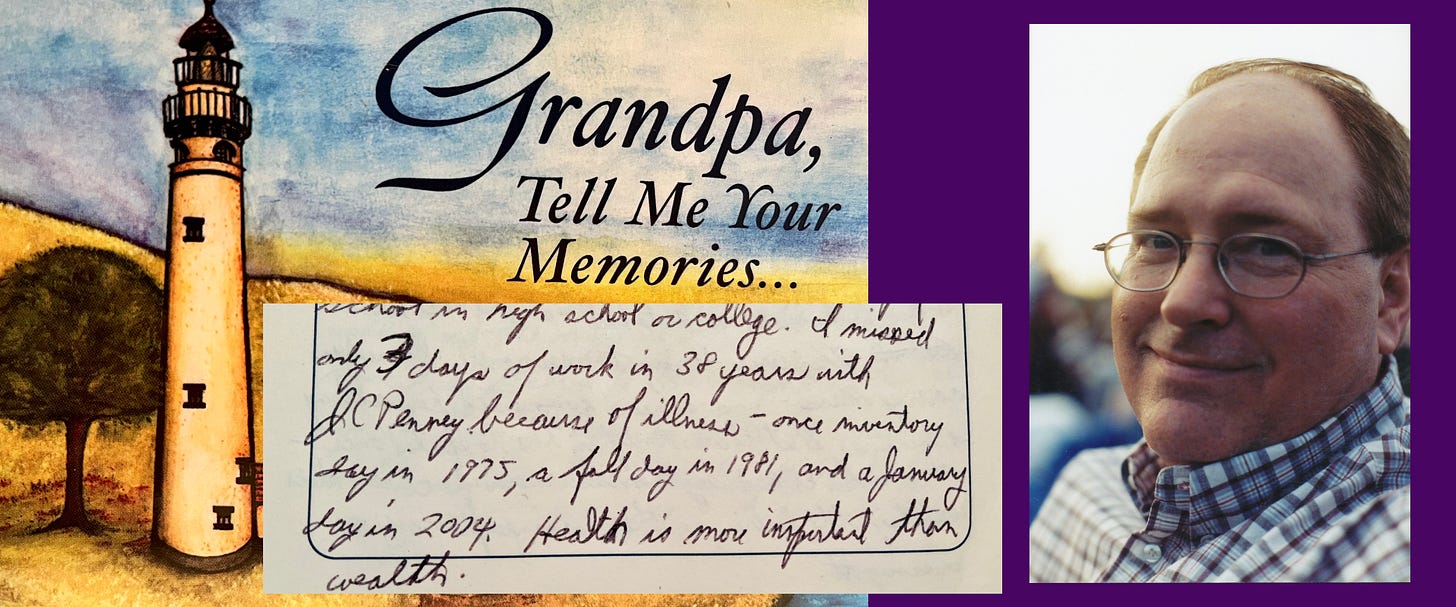 Grandpa,
Tell Me Your
Memories...
school in high school or college. I missed
only 3 days of work in 38 years with
JCPenney because of illness – once inventory
day in 1975, a fall day in 1981, and a January
day in 2004. Health is more important than
wealth.